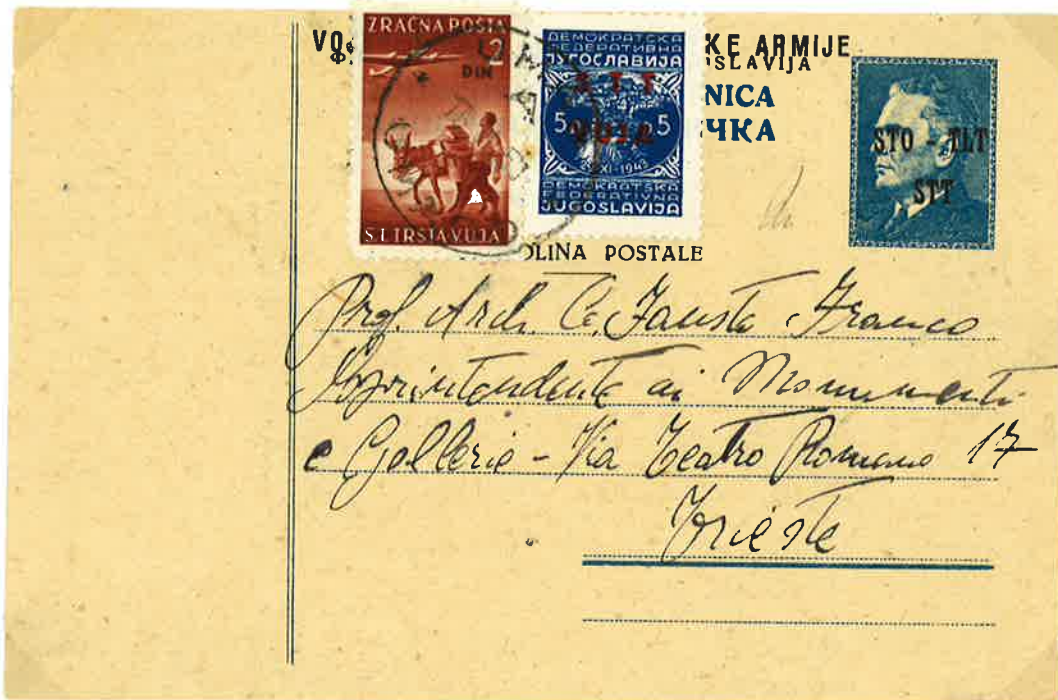 VO
KE ARMIJE
SLAVIJA
NICA
ЧКА
ZRAČNA POSTA
2
DIN
S.T.TRSTA VUJA
ДЕМОКРАТСКА
ФЕДЕРАТИВНА
ЈУГОСЛАВИЈА
STT
VUJA
5 5
XI-1943
DEMOKRATSKA
FEDERATIVNA
JUGOSLAVIJA
STO - TLT
STT
OLINA POSTALE
Prof. Arch. C. Fausto Franco
Soprintendente ai Monumenti
e Gallerie - Via Teatro Romano 17
Trieste